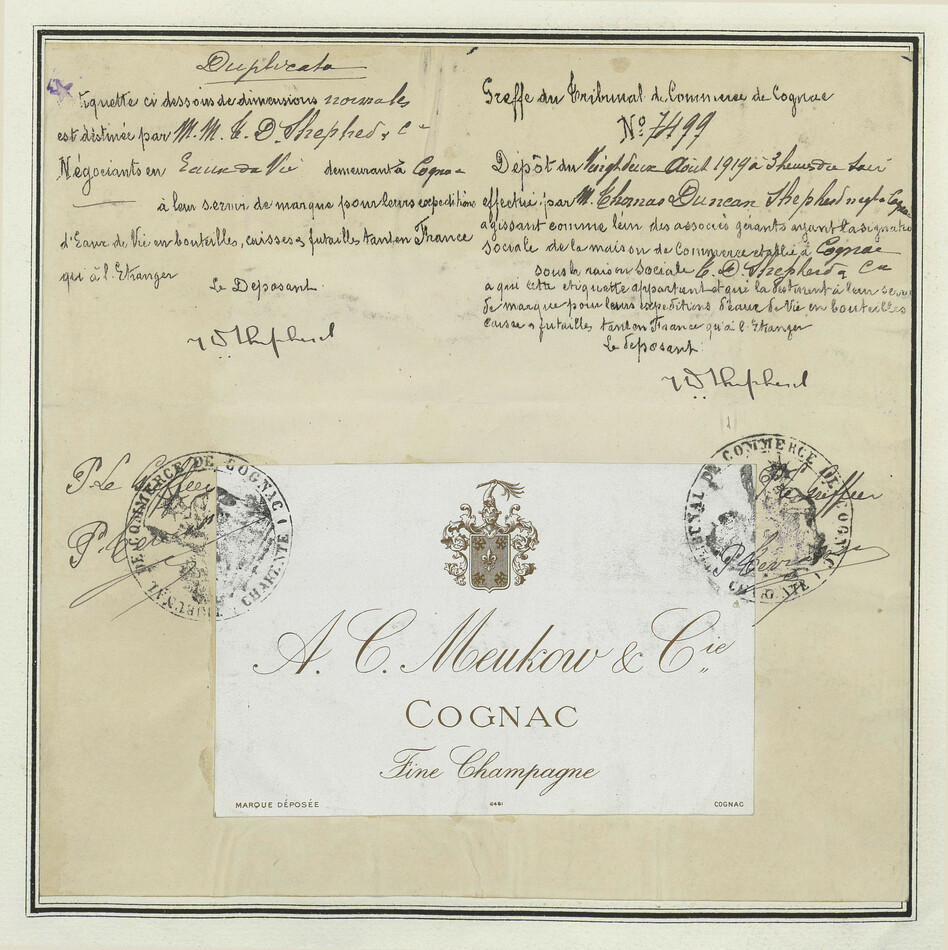 Duplicata
tiquette ci dessous de dimensions normales
est destinée par M.M. T. D. Shepherd & Cie
Négociants en Eaux de Vie demeurant à Cognac
à leur servir de marque pour leurs expeditions
d'Eaux de Vie en bouteilles, caisses & futailles tant en France
qu'à l'Etranger
Le Deposant
T D Shepherd
Greffe du Tribunal de Commerce de Cognac
No 7499
Dépôt du Vingt deux Août 1919 à 3 heures du soir
effectué par M. Thomas Duncan Shepherd negt Cognac
agissant comme l'un des associés gérants ayant la signature
sociale de la maison de Commerce etablie à Cognac
sous la raison sociale T. D. Shepherd & Cie
a qui cette etiquette appartient et qui la destinent à leur servir
de marque pour leurs expeditions d'eaux de Vie en bouteilles
caisses & futailles tant en France qu'à l'Etranger
Le deposant
T D Shepherd
TRIBUNAL DE COMMERCE DE COGNAC (CHARENTE)
TRIBUNAL DE COMMERCE DE COGNAC (CHARENTE)
A. C. Meukow & Cie
COGNAC
Fine Champagne
MARQUE DÉPOSÉE
6461
COGNAC